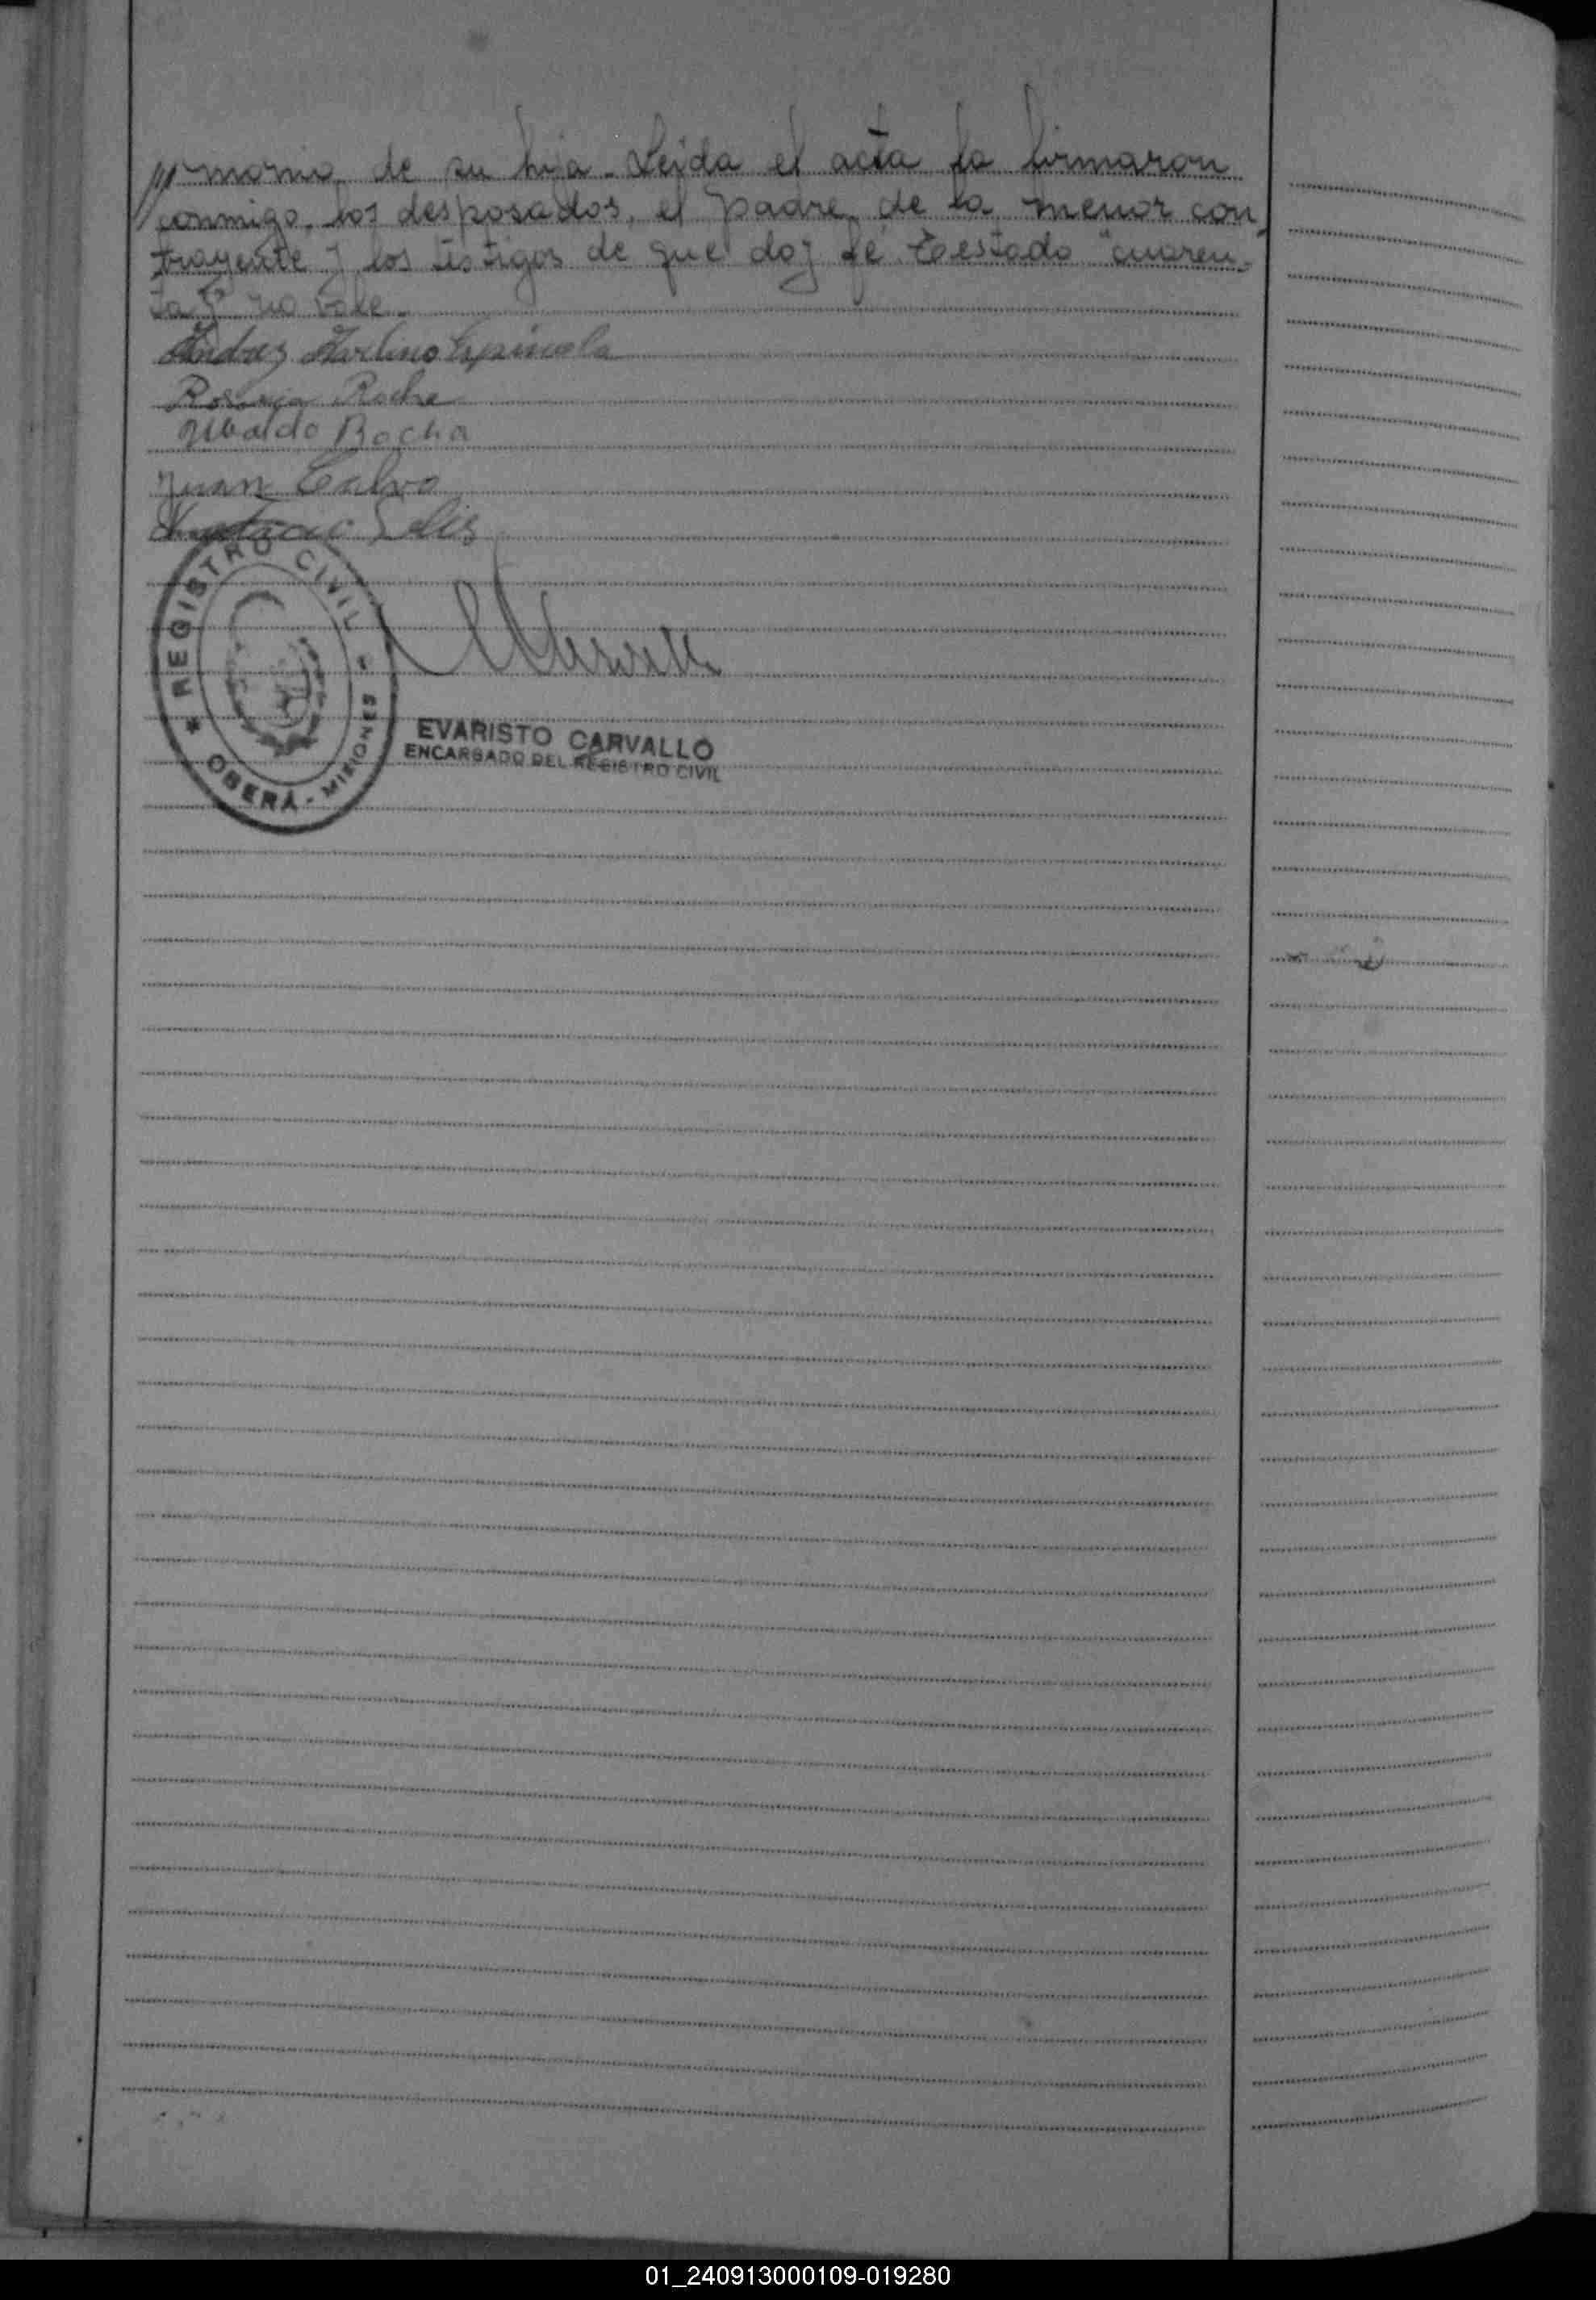 monio de su hija. Leida el acta la firmaron
conmigo, los desposados, el padre de la menor con
trayente y los testigos de que doy fé. Testado "cuaren-
ta" no vale.
Andrez Espinola
Rocha
Rocha
Juan Calvo
Solis
REGISTRO CIVIL
OBERÁ - MISIONES
EVARISTO CARVALLO
ENCARGADO DEL REGISTRO CIVIL
01_240913000109-019280